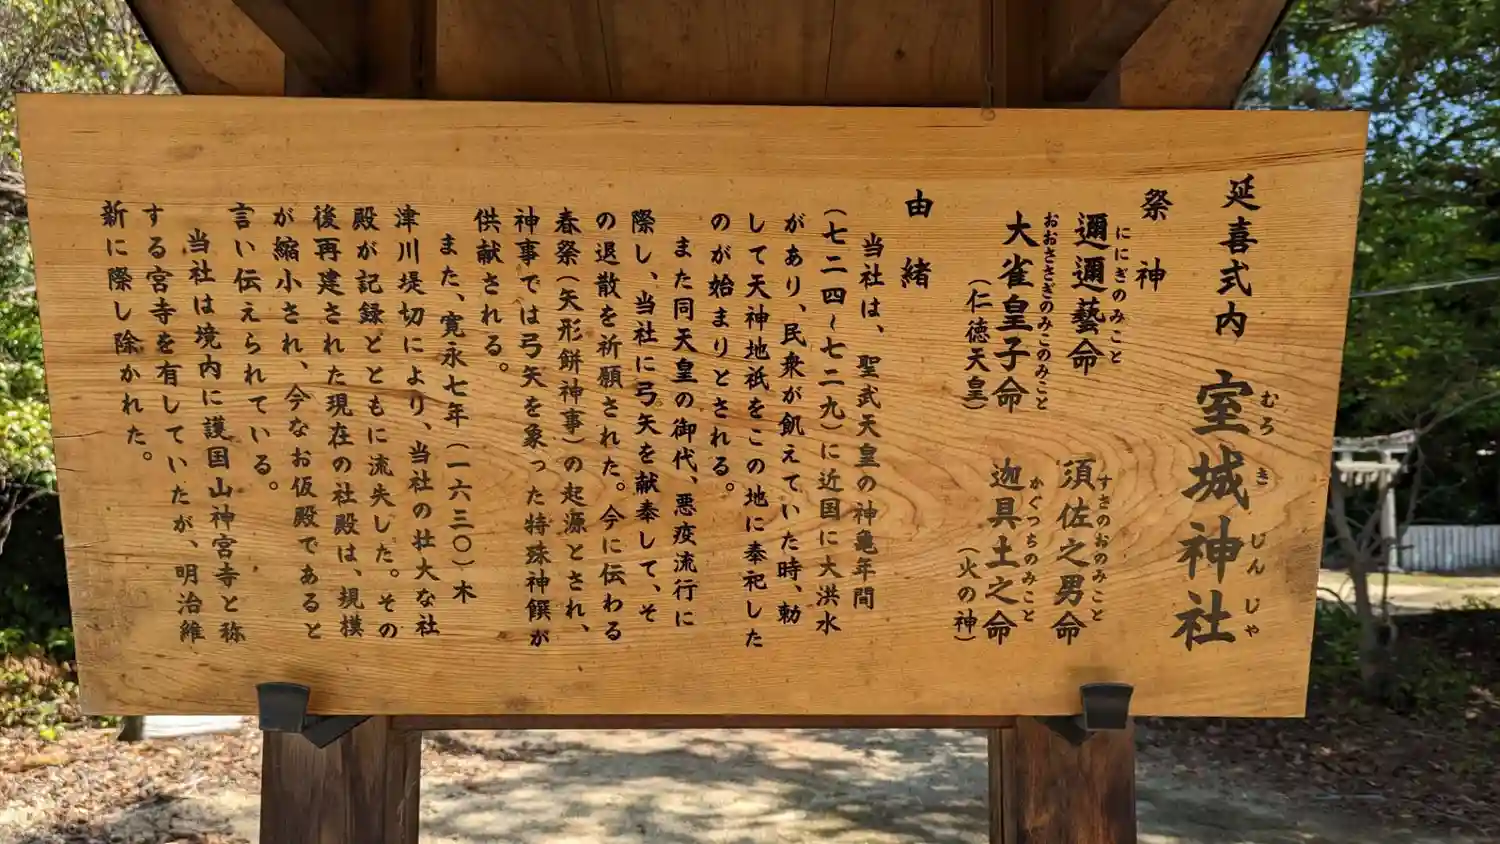 延喜式内 室城神社
むろ き じん じゃ
祭神
ににぎのみこと
邇邇藝命
すさのおのみこと
須佐之男命
おおさざぎのみこのみこと
大雀皇子命
(仁徳天皇)
かぐつちのみこと
迦具土之命
(火の神)
由緒
当社は、聖武天皇の神亀年間
(七二四~七二九)に近国に大洪水
があり、民衆が飢えていた時、勅
して天神地祇をこの地に奉祀した
のが始まりとされる。
また同天皇の御代、悪疫流行に
際し、当社に弓矢を献奉して、そ
の退散を祈願された。今に伝わる
春祭(矢形餅神事)の起源とされ、
神事では弓矢を象った特殊神饌が
供献される。
また、寛永七年(一六三〇)木
津川堤切により、当社の壮大な社
殿が記録とともに流失した。その
後再建された現在の社殿は、規模
が縮小され、今なお仮殿であると
言い伝えられている。
当社は境内に護国山神宮寺と称
する宮寺を有していたが、明治維
新に際し除かれた。